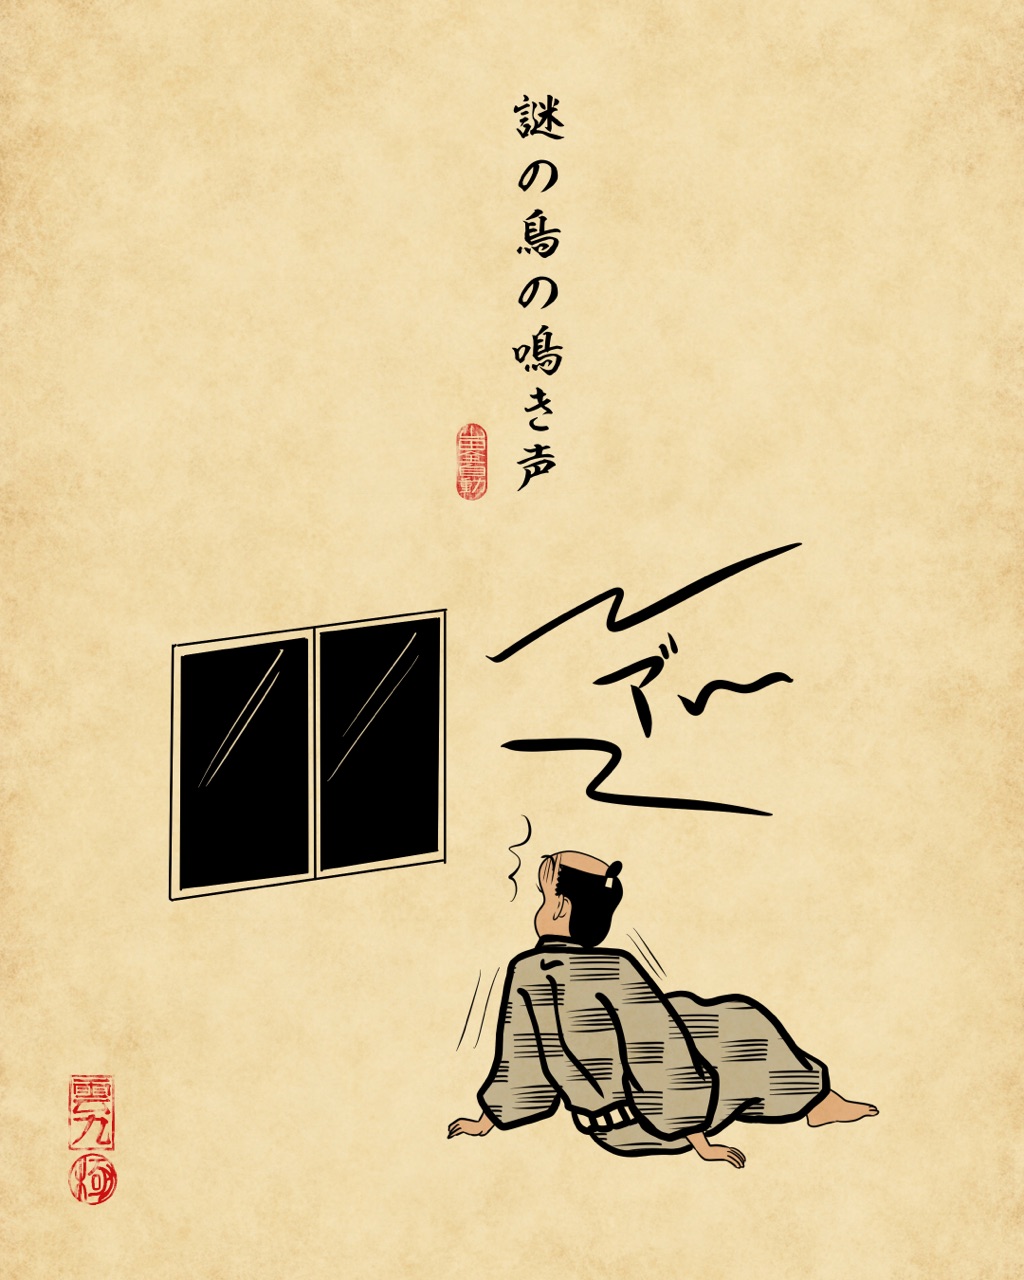 謎の鳥の鳴き声
ア゛〜
雲九